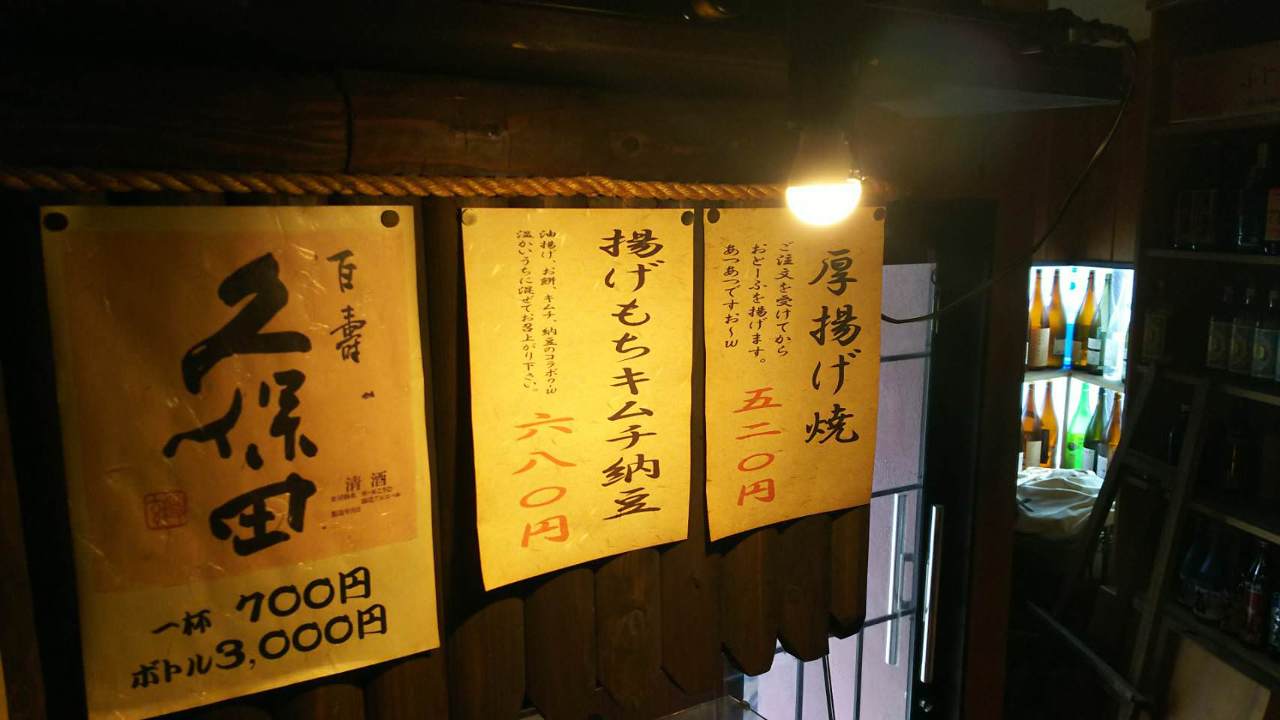 百寿
久保田
清酒
一杯 700円
ボトル3,000円
揚げもちキムチ納豆
油揚げ、お餅、キムチ、納豆のコラボ?w
温かいうちに混ぜてお召上がり下さい。
六八〇円
厚揚げ焼
ご注文を受けてから
おとーふを揚げます。
あつあつですお〜w
五二〇円